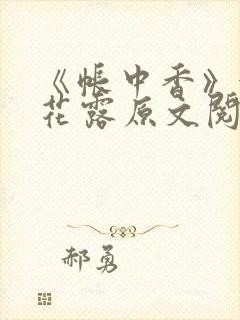 《帐中香》
花露原文阅
郝勇